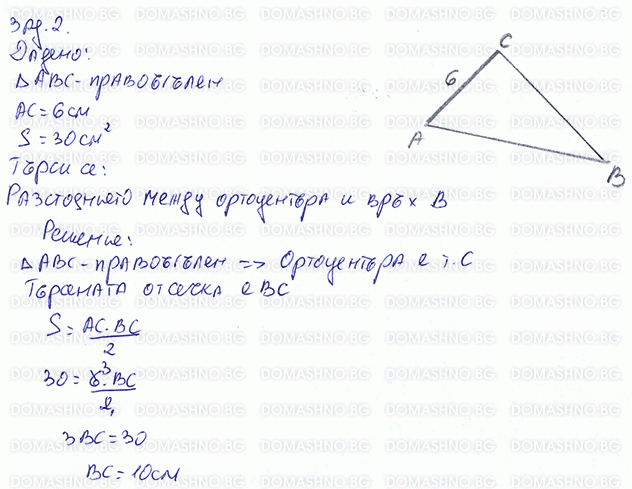 Зад. 2.
Дадено:
△ABC - правоъгълен
AC = 6 см
S = 30 см²
Търси се:
Разстоянието между ортоцентъра и връх B
Решение:
△ABC - правоъгълен => Ортоцентъра е т. C
Търсената отсечка е BC
S = AC.BC / 2
30 = 6³.BC / 2₁
3BC = 30
BC = 10 см
C
6
A
B
DOMASHNO.BG